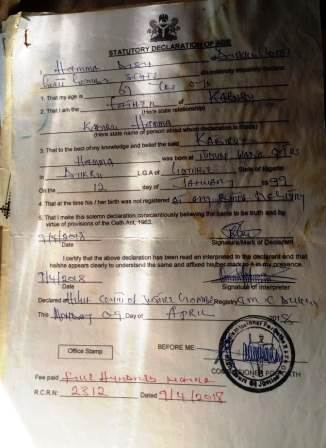 STATUTORY DECLARATION OF AGE
I, Hamma
Gombe State
1. That my age is 67 yrs old
2. That I am the Father of Kabiru
(Here state relationship)
Kabiru Hamma
(Here state name of person about whom declaration is made)
3. That to the best of my knowledge and belief the said Kabiru
Hamma was born at
in Dukku L.G.A of Gombe State of Nigeria
On the 12 day of January
4. That at the time his / her birth was not registered
5. That I make this solemn declaration conscientiously believing the same to be true and by
virtue of provisions of the Oath Act, 1963.
9/4/2018
Date Signature/Mark of Declarant
I certify that the above declaration has been read an interpreted to the declarant and that
he/she appears clearly to understand the same and affixed his/her mark to it in my presence.
9/4/2018
Date Signature of Interpreter
Declared at High Court of Justice Gombe Registry
This Monday 09 Day of April 2018
BEFORE ME
Office Stamp
COMMISSIONER FOR OATH
Fee paid Four Hundred Naira
R.C.R.N: 2312 Dated 9/4/2018